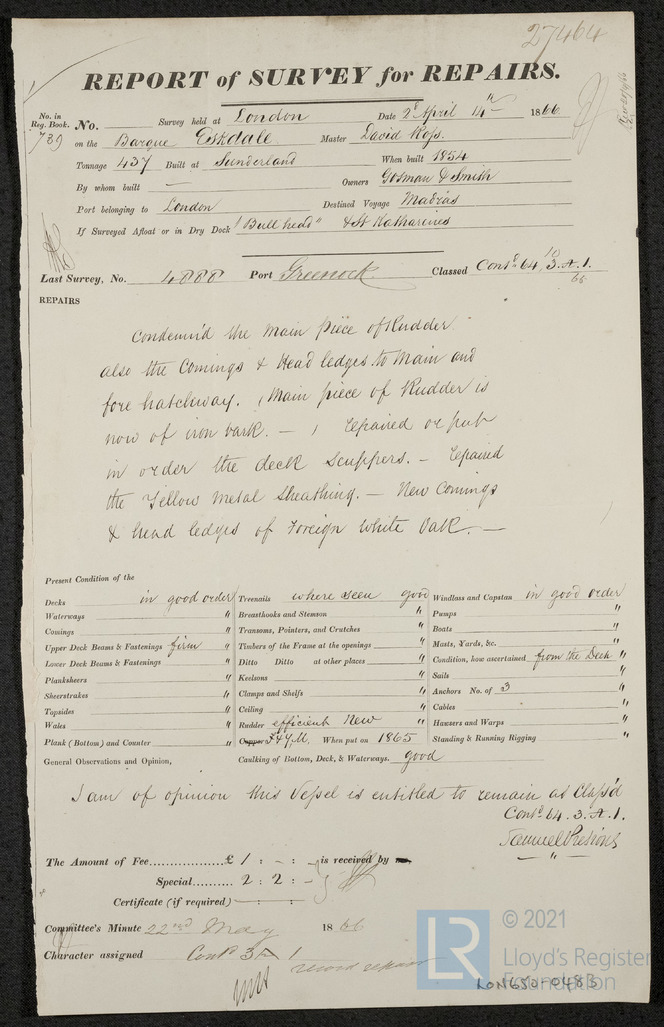 27464
REPORT of SURVEY for REPAIRS.
No. in Reg. Book. No. Survey held at London Date 28 April 14th 1866
739 on the Barque Eskdale Master David Ross
Tonnage 437 Built at Sunderland When built 1854
By whom built — Owners Gosman & Smith
Port belonging to London Destined Voyage Madras
If Surveyed Afloat or in Dry Dock "Bull head" & St Katharines
Last Survey, No. 4888 Port Greenock Classed Contd 64, 3. A. 1.
10
65
REPAIRS
Condemn'd the Main piece of Rudder
also the Comings & Head ledges to Main and
fore hatchway. (Main piece of Rudder is
now of iron bark. — ) Repaired or put
in order the deck Scuppers. — Repaired
the Yellow Metal Sheathing. — New Comings
& head ledges of Foreign White Oak. —
Present Condition of the
Decks in good order Treenails where seen good Windlass and Capstan in good order
Waterways " Breasthooks and Stemson " Pumps "
Comings " Transoms, Pointers, and Crutches " Boats "
Upper Deck Beams & Fastenings firm " Timbers of the Frame at the openings " Masts, Yards, &c. "
Lower Deck Beams & Fastenings " Ditto Ditto at other places " Condition, how ascertained from the Deck "
Planksheers " Keelsons " Sails "
Sheerstrakes " Clamps and Shelfs " Anchors No. of 3 "
Topsides " Ceiling " Cables "
Wales " Rudder efficient New " Hawsers and Warps "
Plank (Bottom) and Counter " Copper F & Y.M. When put on 1865 Standing & Running Rigging "
General Observations and Opinion, Caulking of Bottom, Deck, & Waterways. good
I am of opinion this Vessel is entitled to remain as Class'd
Contd 64. 3. A. 1.
Samuel Pretious
The Amount of Fee............... £ 1 : - : - is received by
Special.......... 2 : 2 : -
Certificate (if required) - : - : -
Committee's Minute 22nd May 1866
Character assigned Contd 3 A 1
record repairs
LR © 2021
Lloyd's Register
Foundation
LON650-0483